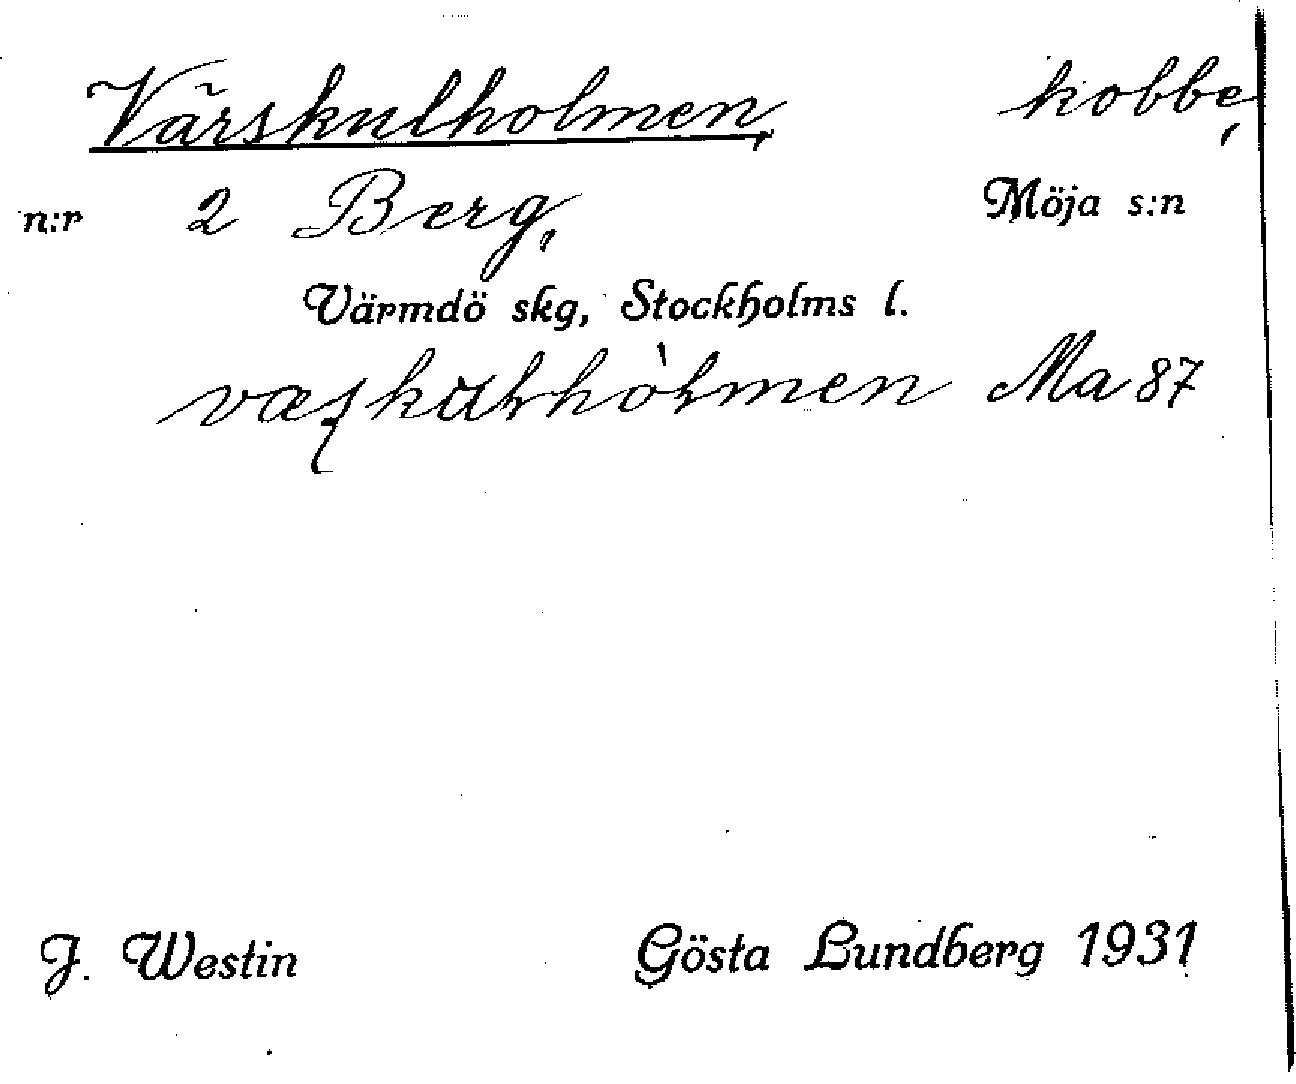 Värskulholmen, kobbe,
n:r 2 Berg, Möja s:n
Värmdö skg, Stockholms l.
Ma 87
J. Westin Gösta Lundberg 1931